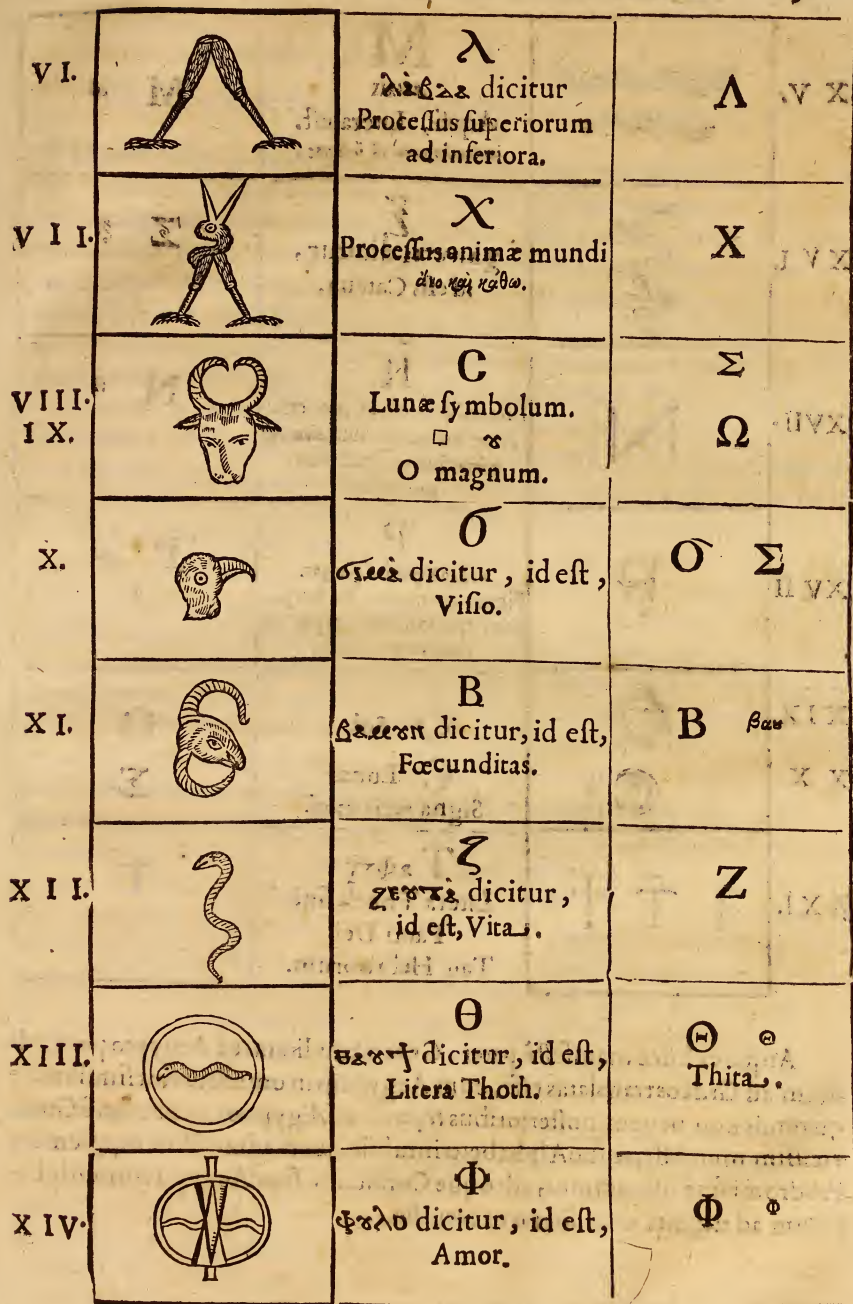 VI.
λ
dicitur
Proceſſus ſuperiorum
ad inferiora.
Λ
VII.
X
Proceſſus animæ mundi
X
VIII.
IX.
C
Lunæ ſymbolum.
□ ȣ
O magnum.
Σ
Ω
X.
σ
dicitur, id eſt,
Viſio.
σ Σ
XI.
B
dicitur, id eſt,
Fœcunditas.
B βαυ
XII.
ζ
dicitur,
id eſt, Vita.
Z
XIII.
Θ
dicitur, id eſt,
Litera Thoth.
Θ Θ
Thita.
XIV.
Φ
ⲫȣλο dicitur, id eſt,
Amor.
Φ Φ